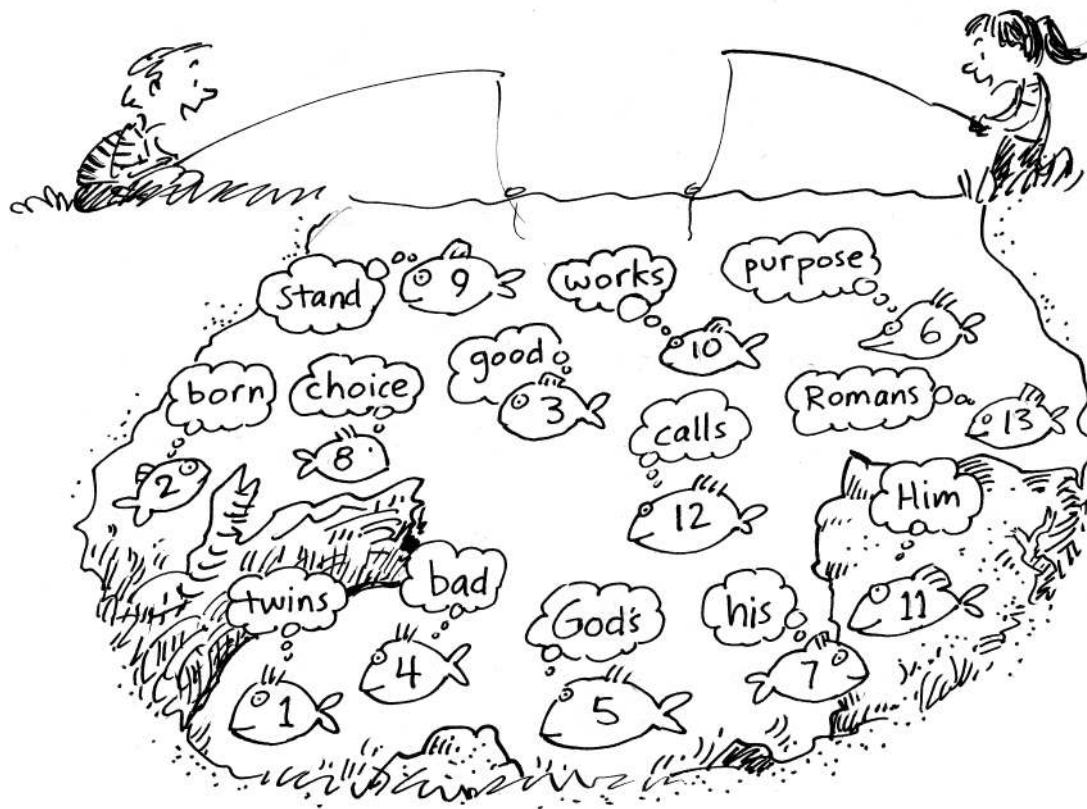 stand
9
works
10
purpose
6
born
2
choice
8
good
3
calls
12
Romans
13
Him
11
twins
1
bad
4
God's
5
his
7